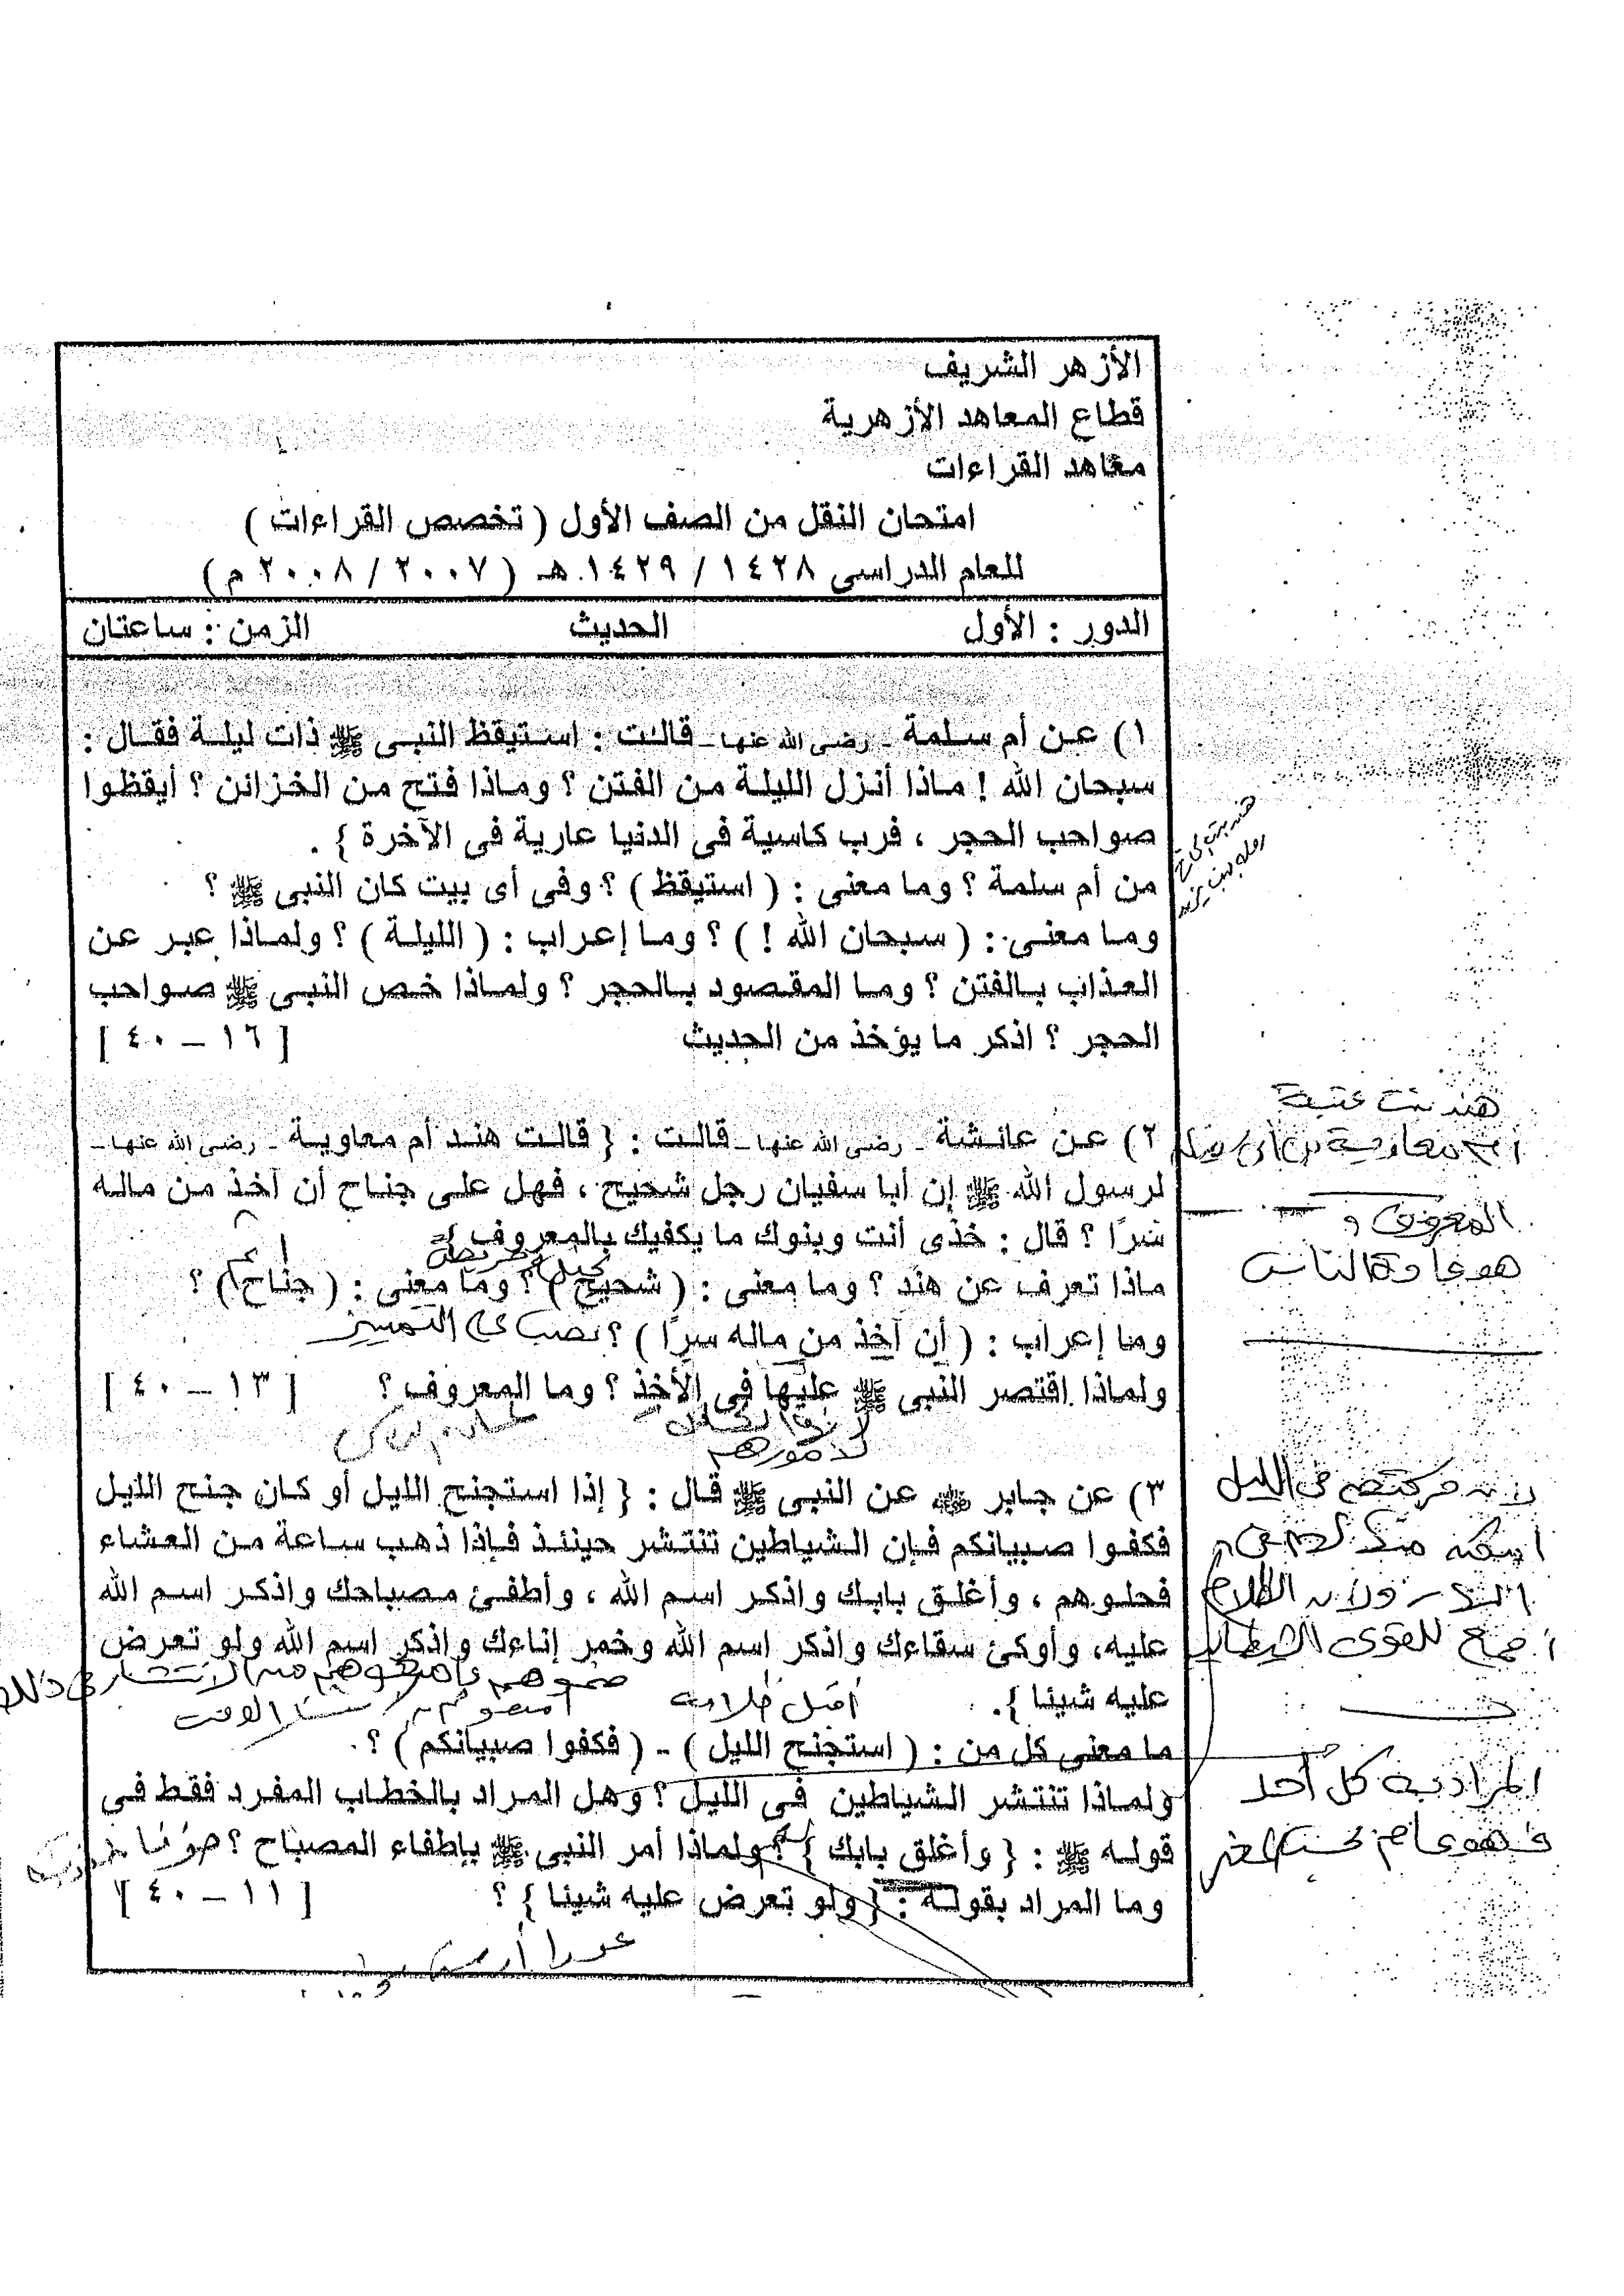 الأزهر الشريف
قطاع المعاهد الأزهرية
معاهد القراءات
امتحان النقل من الصف الأول ( تخصص القراءات )
للعام الدراسى ١٤٢٨ / ١٤٢٩ هـ ( ٢٠٠٧ / ٢٠٠٨ م )
الدور : الأول الحديث الزمن : ساعتان
١) عن أم سلمة - رضى الله عنها - قالت : استيقظ النبى ﷺ ذات ليلة فقال :
سبحان الله ! ماذا أنزل الليلة من الفتن ؟ وماذا فتح من الخزائن ؟ أيقظوا
صواحب الحجر ، فرب كاسية فى الدنيا عارية فى الآخرة } .
من أم سلمة ؟ وما معنى : ( استيقظ ) ؟ وفى أى بيت كان النبى ﷺ ؟
وما معنى : ( سبحان الله ! ) ؟ وما إعراب : ( الليلة ) ؟ ولماذا عبر عن
العذاب بالفتن ؟ وما المقصود بالحجر ؟ ولماذا خص النبى ﷺ صواحب
الحجر ؟ اذكر ما يؤخذ من الحديث [ ١٦ - ٤٠ ]
هند بنت عتبة
٢) عن عائشة - رضى الله عنها - قالت : { قالت هند أم معاوية - رضى الله عنها -
أم معاوية بن أبى
لرسول الله ﷺ إن أبا سفيان رجل شحيح ، فهل على جناح أن آخذ من ماله
المعروف
سرًا ؟ قال : خذى أنت وبنوك ما يكفيك بالمعروف }
هو عادة الناس
إثم
ماذا تعرف عن هند ؟ وما معنى : ( شحيح ) ؟ وما معنى : ( جناح ) ؟
وما إعراب : ( أن آخذ من ماله سرًا ) ؟ نصب على التمييز
ولماذا اقتصر النبى ﷺ عليها فى الأخذ ؟ وما المعروف ؟ [ ١٣ - ٤٠ ]
لأنها
لأمورهم
٣) عن جابر ﷺ عن النبى ﷺ قال : { إذا استجنح الليل أو كان جنح الليل
لأن حركتهم فى الليل
فكفوا صبيانكم فإن الشياطين تنتشر حينئذ فإذا ذهب ساعة من العشاء
فحلوهم ، وأغلق بابك واذكر اسم الله ، وأطفئ مصباحك واذكر اسم الله
ولأن الظلام
عليه، وأوكئ سقاءك واذكر اسم الله وخمر إناءك واذكر اسم الله ولو تعرض
أجمع للقوى
ضموهم وامنعوهم من الانتشار فى ذلك
عليه شيئا }.
أقبل ظلامه
ما معنى كل من : ( استجنح الليل ) - ( فكفوا صبيانكم ) ؟.
المراد به كل أحد
ولماذا تنتشر الشياطين فى الليل ؟ وهل المراد بالخطاب المفرد فقط فى
فهو عام
قوله ﷺ : { وأغلق بابك } ؟ ولماذا أمر النبى ﷺ بإطفاء المصباح ؟
وما المراد بقوله : { ولو تعرض عليه شيئا } ؟ [ ١١ - ٤٠ ]